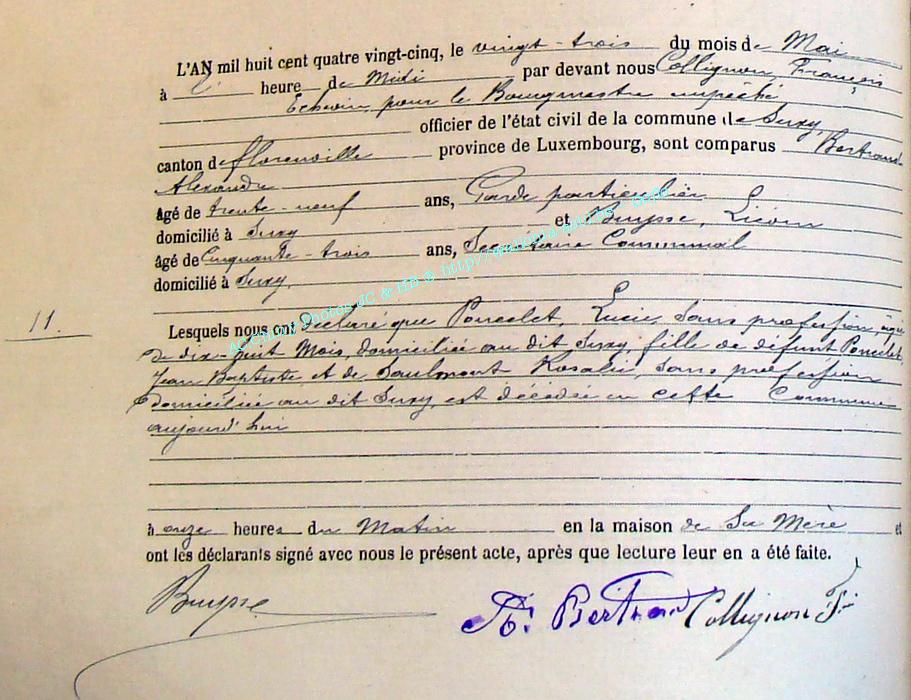 L'AN mil huit cent quatre vingt-cinq, le vingt-trois du mois de Mai
à heure de Midi par devant nous Collignon, François
Echevin, pour le Bourgmestre empêché
officier de l'état civil de la commune de Suxy,
canton de florenville province de Luxembourg, sont comparus Bertrand
Alexandre
âgé de trente-neuf ans, Garde particulier
domicilié à Suxy et Buysse, Léon
âgé de Cinquante-trois ans, Secrétaire Communal
domicilié à Suxy,
11.
Lesquels nous ont déclaré que Poncelet, Lucie, Sans profession, âgée
de dix-huit Mois, domiciliée au dit Suxy, fille de défunt Poncelet,
Jean Baptiste, et de Saulmont Rosalie, sans profession
domiciliée au dit Suxy, est décédée en cette Commune
aujourd'hui
à onze heures du Matin en la maison de Sa Mère et
ont les déclarants signé avec nous le présent acte, après que lecture leur en a été faite.
Buysse A. Bertrand Collignon F.